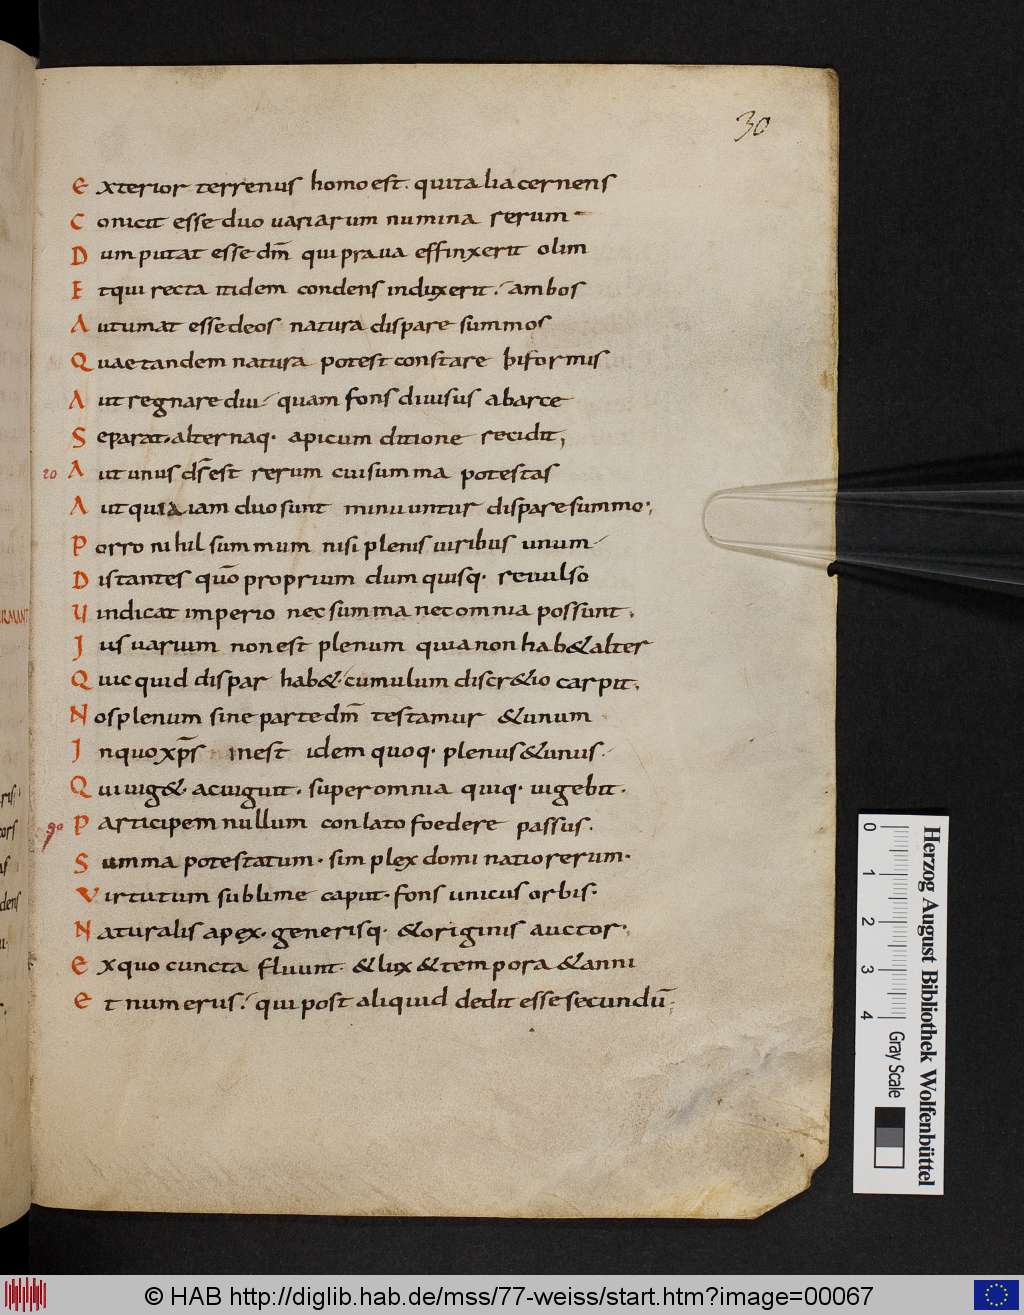 30
Exterior terrenus homo est. qui talia cernens
Conicit esse duo uariarum numina rerum
Dum putat esse dm̄ qui praua effinxerit olim
Et qui recta itidem condens induxerit. ambos
Autumat esse deos natura dispare summos
Quae tandem natura potest constare biformis
Aut regnare diu quam fons diuisus ab arce
Separat. alternaq. apicum ditione recidit,
20 Aut unus ds̄ est rerum cui summa potestas
Aut quia iam duo sunt minuuntur dispare summo.,
Porro nihil summum nisi plenis uiribus unum
Distantes quō proprium dum quisq. reuulso
Uindicat imperio nec summa nec omnia possunt.
Ius uarium non est plenum quia non hab& alter
Quicquid dispar hab& cumulum discr&io carpit.
Nos plenum sine parte dm̄ testamur &unum
In quo xp̄s inest idem quoq. plenus &unus.
Qui uig& ac uiguit. super omnia quiq. uigebit.
90 Participem nullum conlato foedere passus.
Summa potestatum. simplex dominatio rerum.
Virtutum sublime caput. fons unicus orbis.
Naturalis apex. generisq. &originis auctor.
Ex quo cuncta fluunt. &lux &tempora &anni
Et numerus. qui post aliquid dedit esse secundū.
0 1 2 3 4
Gray Scale
Herzog August Bibliothek Wolfenbüttel
© HAB http://diglib.hab.de/mss/77-weiss/start.htm?image=00067